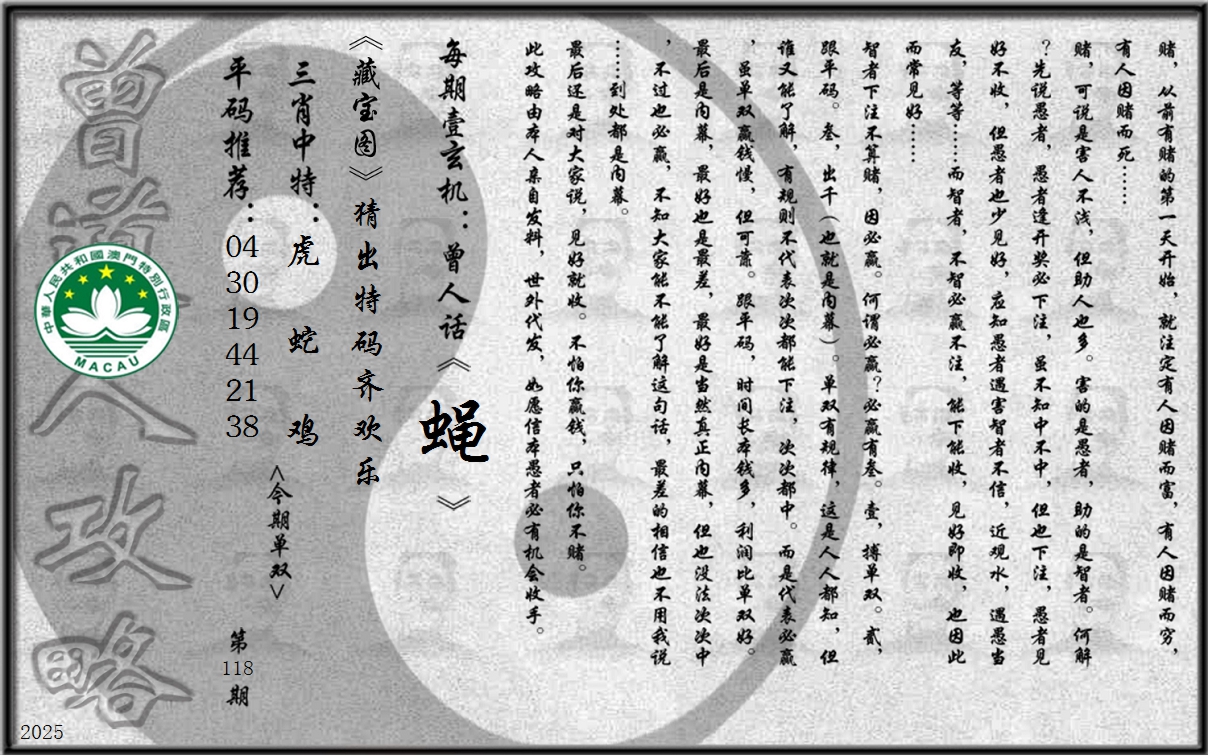 赌，从前有赌的第一天开始，就注定有人因赌而富，有人因赌而穷，
有人因赌而死……
赌，可说是害人不浅，但助人也多。害的是愚者，助的是智者。何解
？先说愚者，愚者逢开奖必下注，虽不知中不中，但也下注，愚者见
好不收，但愚者也少见好，应知愚者遇害智者不信，近观水，遇愚当
友，等等……而智者，不智必赢不注，能下能收，见好即收，也因此
而常见好……
智者下注不算赌，因必赢。何谓必赢？必赢有叁。壹，搏单双。贰，
跟平码。叁，出千（也就是内幕）。单双有规律，这是人人都知，但
谁又能了解，有规则不代表次次都能下注，次次都中。而是代表必赢
，虽单双赢钱慢，但可靠。跟平码，时间长本钱多，利润比单双好。
最后是内幕，最好也是最差，最好是当然真正内幕，但也没法次次中
，不过也必赢，不知大家能不能了解这句话，最差的相信也不用我说
……到处都是内幕。
最后还是对大家说，见好就收。不怕你赢钱，只怕你不赌。
此攻略由本人亲自发料，世外代发，如愿信本愚者必有机会收手。
每期壹玄机：曾人话《蝇》
《藏宝图》猜出特码齐欢乐
三肖中特：虎 蛇 鸡
<今期单双>
平码推荐：04 30 19 44 21 38
第118期
曾道人攻略
中華人民共和國澳門特別行政區
MACAU
2025